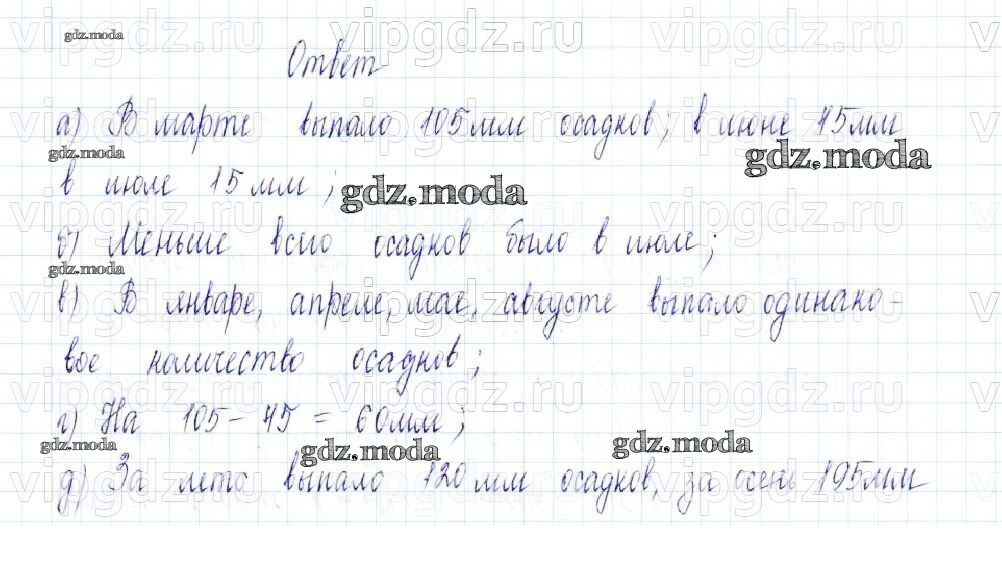 Ответ
а) В марте выпало 105 мм осадков; в июне 45 мм
в июле 15 мм;
б) Меньше всего осадков было в июле;
в) В январе, апреле, мае, августе выпало одинако-
вое количество осадков;
г) На 105 - 45 = 60 мм;
д) За лето выпало 120 мм осадков, за осень 195 мм
gdz.moda
gdz.moda
gdz.moda
gdz.moda
gdz.moda
gdz.moda
gdz.moda
gdz.moda
vipgdz.ru